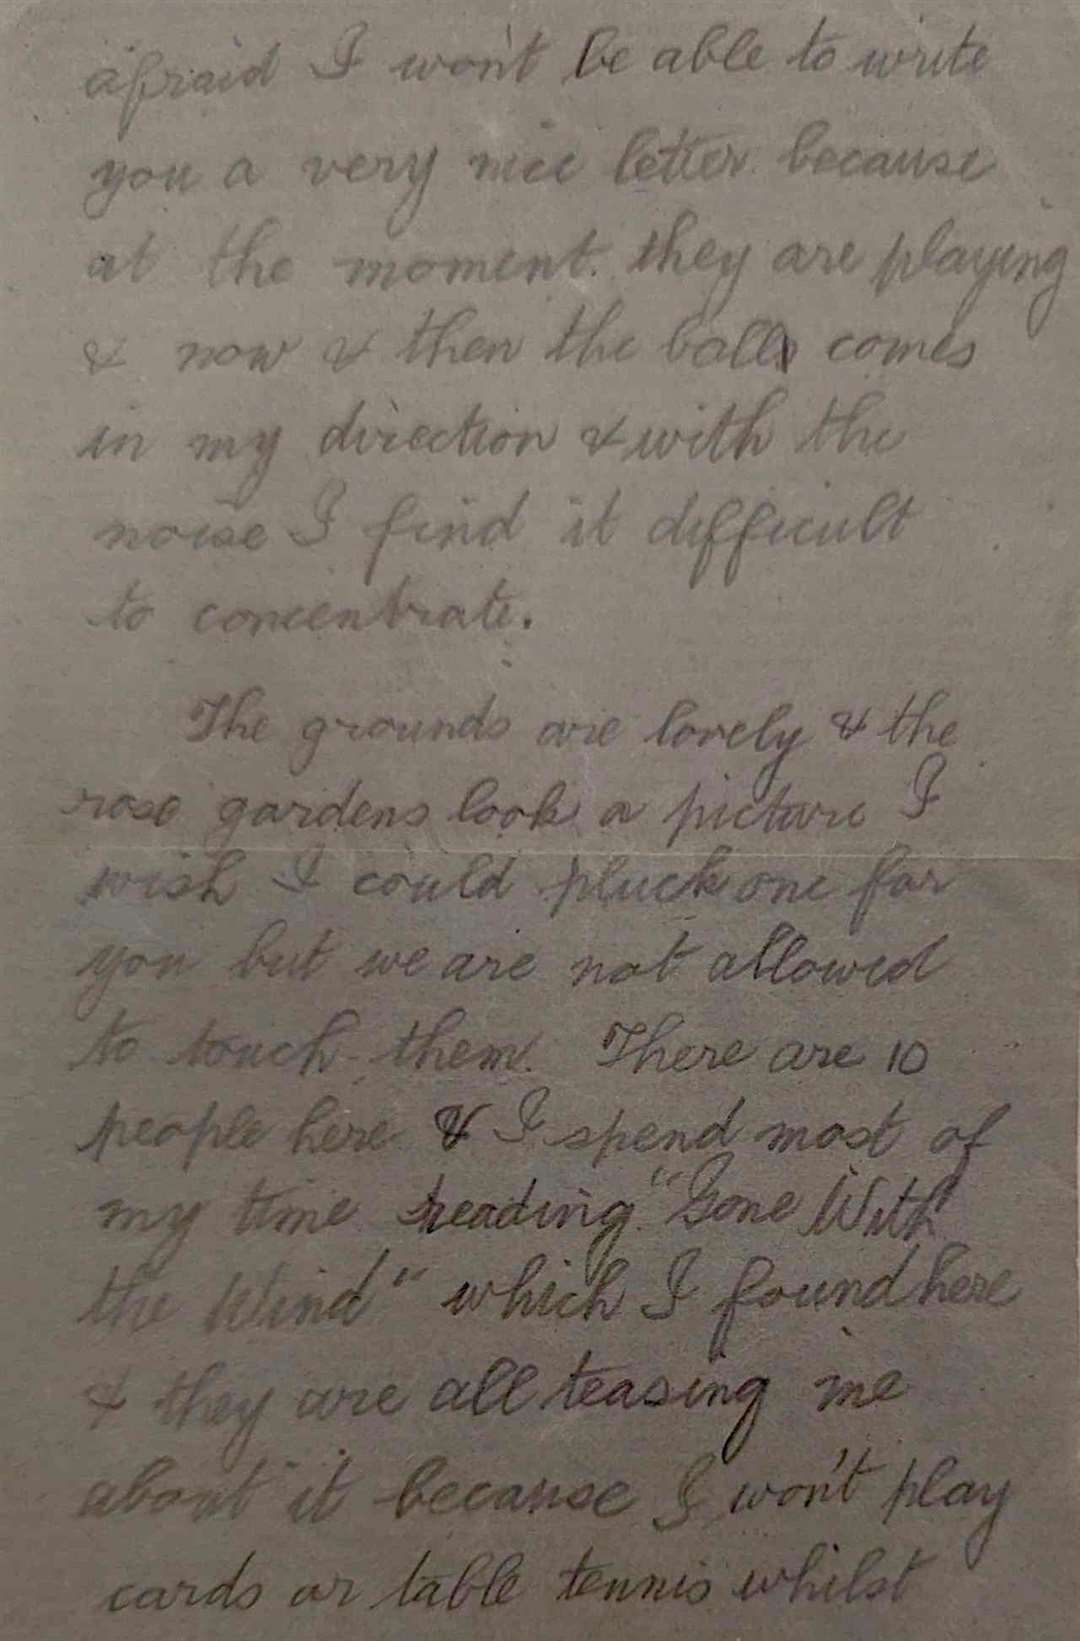 afraid I won't be able to write
you a very nice letter because
at the moment they are playing
& now & then the ball comes
in my direction & with the
noise I find it difficult
to concentrate.
The grounds are lovely & the
rose gardens look a picture I
wish I could pluck one for
you but we are not allowed
to touch them. There are 10
people here & I spend most of
my time reading "Gone With
the Wind" which I found here
& they are all teasing me
about it because I won't play
cards or table tennis whilst